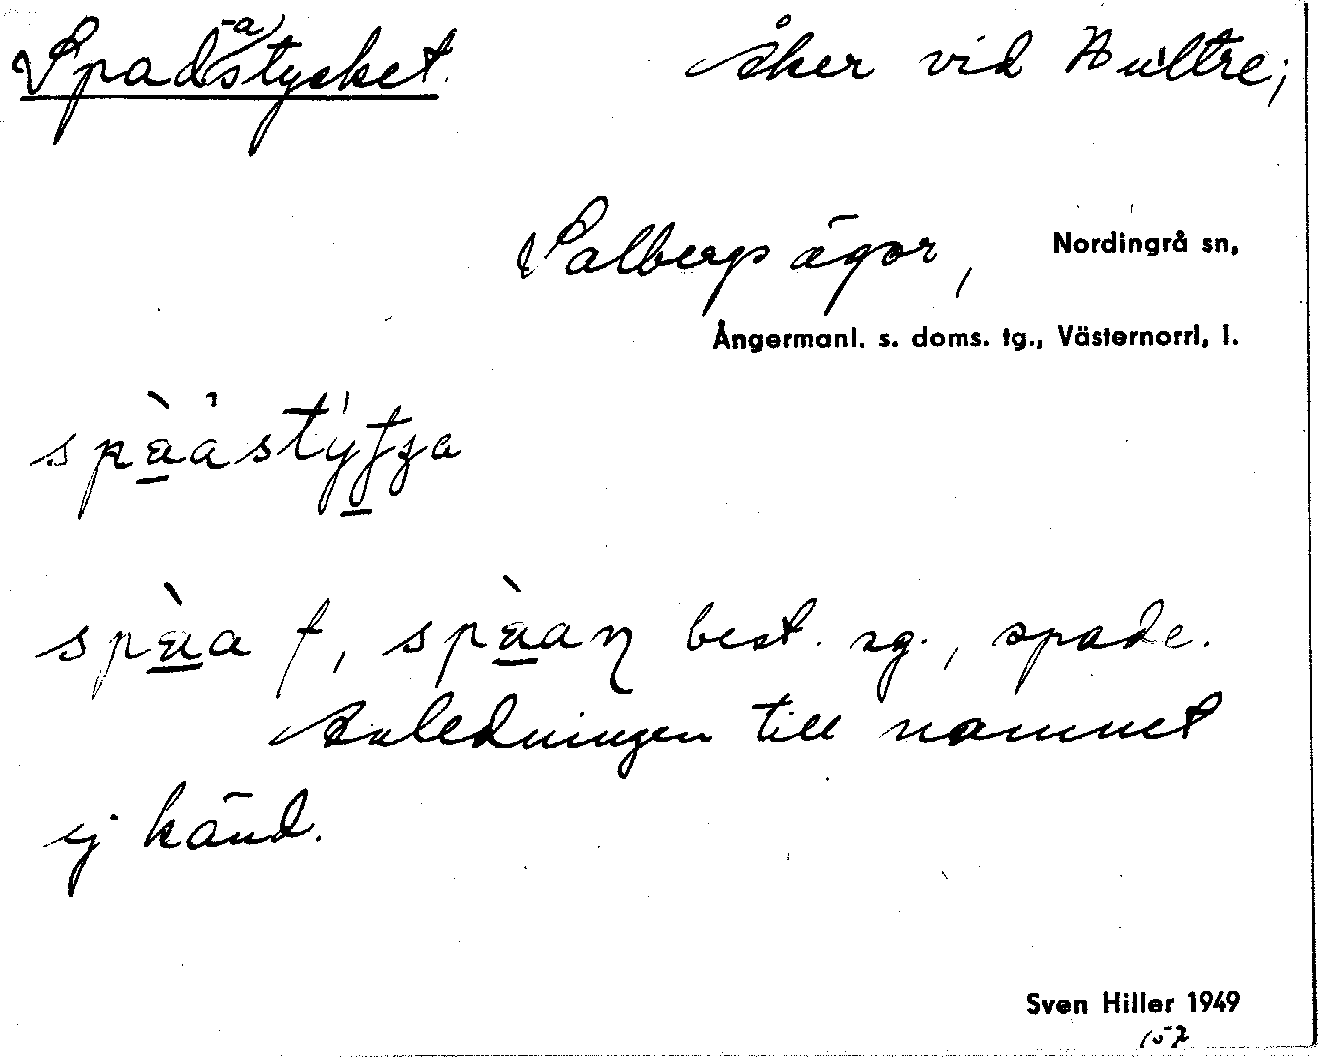 Spad(-a)stycket. åker vid Hultre;
Salbergs ägor, Nordingrå sn,
Ångermanl. s. doms. tg., Västernorrl. l.
spà̲a f, spà̲aη best. sg., spade.
Anledningen till namnet
ej känd.
Sven Hiller 1949
157